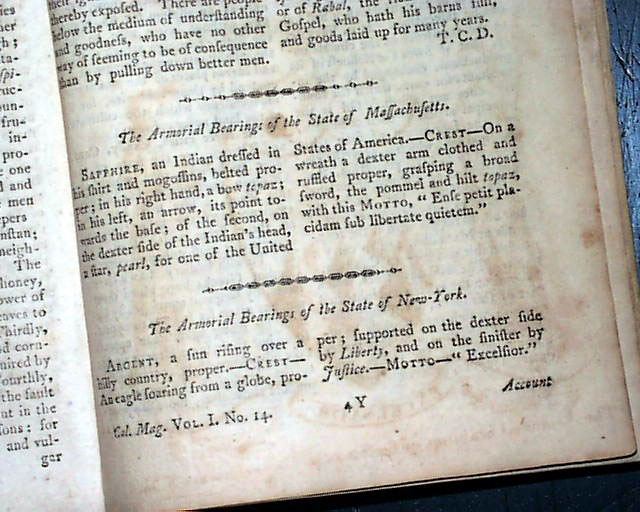 ies
her
gh;
ta-
spi-
cuc-
oun-
fru-
in-
pro-
e one
d and
men
pers
nstan;
neigh-
The
honey,
ower of
eaves to
Thirdly,
d corn-
uired by
Fourthly,
the fault
ut in the
ions; for
and vul-
gar
thereby exposed. There are people
below the medium of underſtanding
and goodneſs, who have no other
way of ſeeming to be of conſequence
than by pulling down better men.
or of Rabal, the
Goſpel, who hath his barns full,
and goods laid up for many years.
T. C. D.
The Armorial Bearings of the State of Maſſachuſetts.
SAPPHIRE, an Indian dreſſed in
his ſhirt and mogoſſins, belted pro-
per; in his right hand, a bow topaz;
in his left, an arrow, its point to-
wards the baſe; of the ſecond, on
the dexter ſide of the Indian's head,
a ſtar, pearl, for one of the United
States of America.—CREST—On a
wreath a dexter arm clothed and
ruffled proper, graſping a broad
ſword, the pommel and hilt topaz,
with this MOTTO, “ Enſe petit pla-
cidam ſub libertate quietem.”
The Armorial Bearings of the State of New-York.
ARGENT, a ſun riſing over a
hilly country, proper.—CREST—
An eagle ſoaring from a globe, pro-
per; ſupported on the dexter ſide
by Liberty, and on the ſiniſter by
Juſtice.—MOTTO—“ Excelſior.”
Account
Col. Mag. VOL. I. No. 14.
4 Y